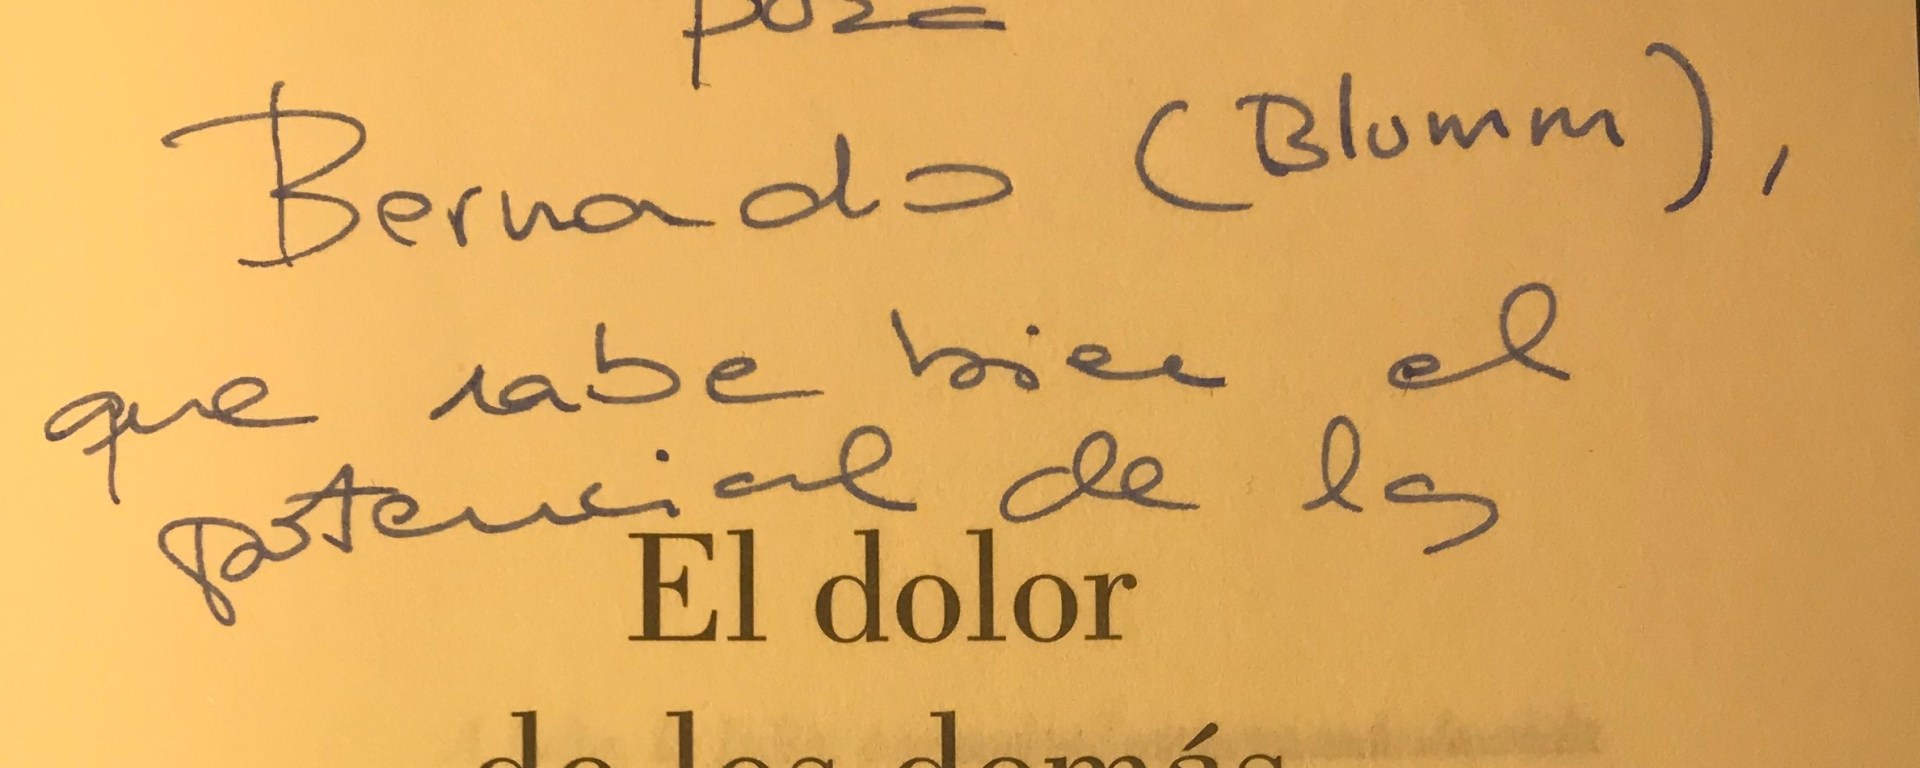 para
Bernardo (Blumm),
que sabe bien el
potencial de las
El dolor
de los demás